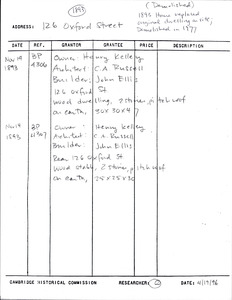 1893
(Demolished)
1893 House replaced
original dwelling on site,
Demolished in 1977
ADDRESS: 126 Oxford Street
DATE REF. GRANTOR GRANTEE PRICE DESCRIPTION
Nov 19 BP Owner: Henry Kelley
1893 4306 Architect: C.A. Russell
Builder: John Ellis
126 Oxford St
Wood dwelling, 2 stories, pitch roof
on earth, 30x30x47
Nov 19 BP Owner: Henry Kelley
1893 4307 Architect: C.A. Russell
Builder: John Ellis
Rear 126 Oxford St
Wood stable, 2 stories, pitch roof
on earth, 25x25x30
CAMBRIDGE HISTORICAL COMMISSION RESEARCHER: DATE: 4/19/96